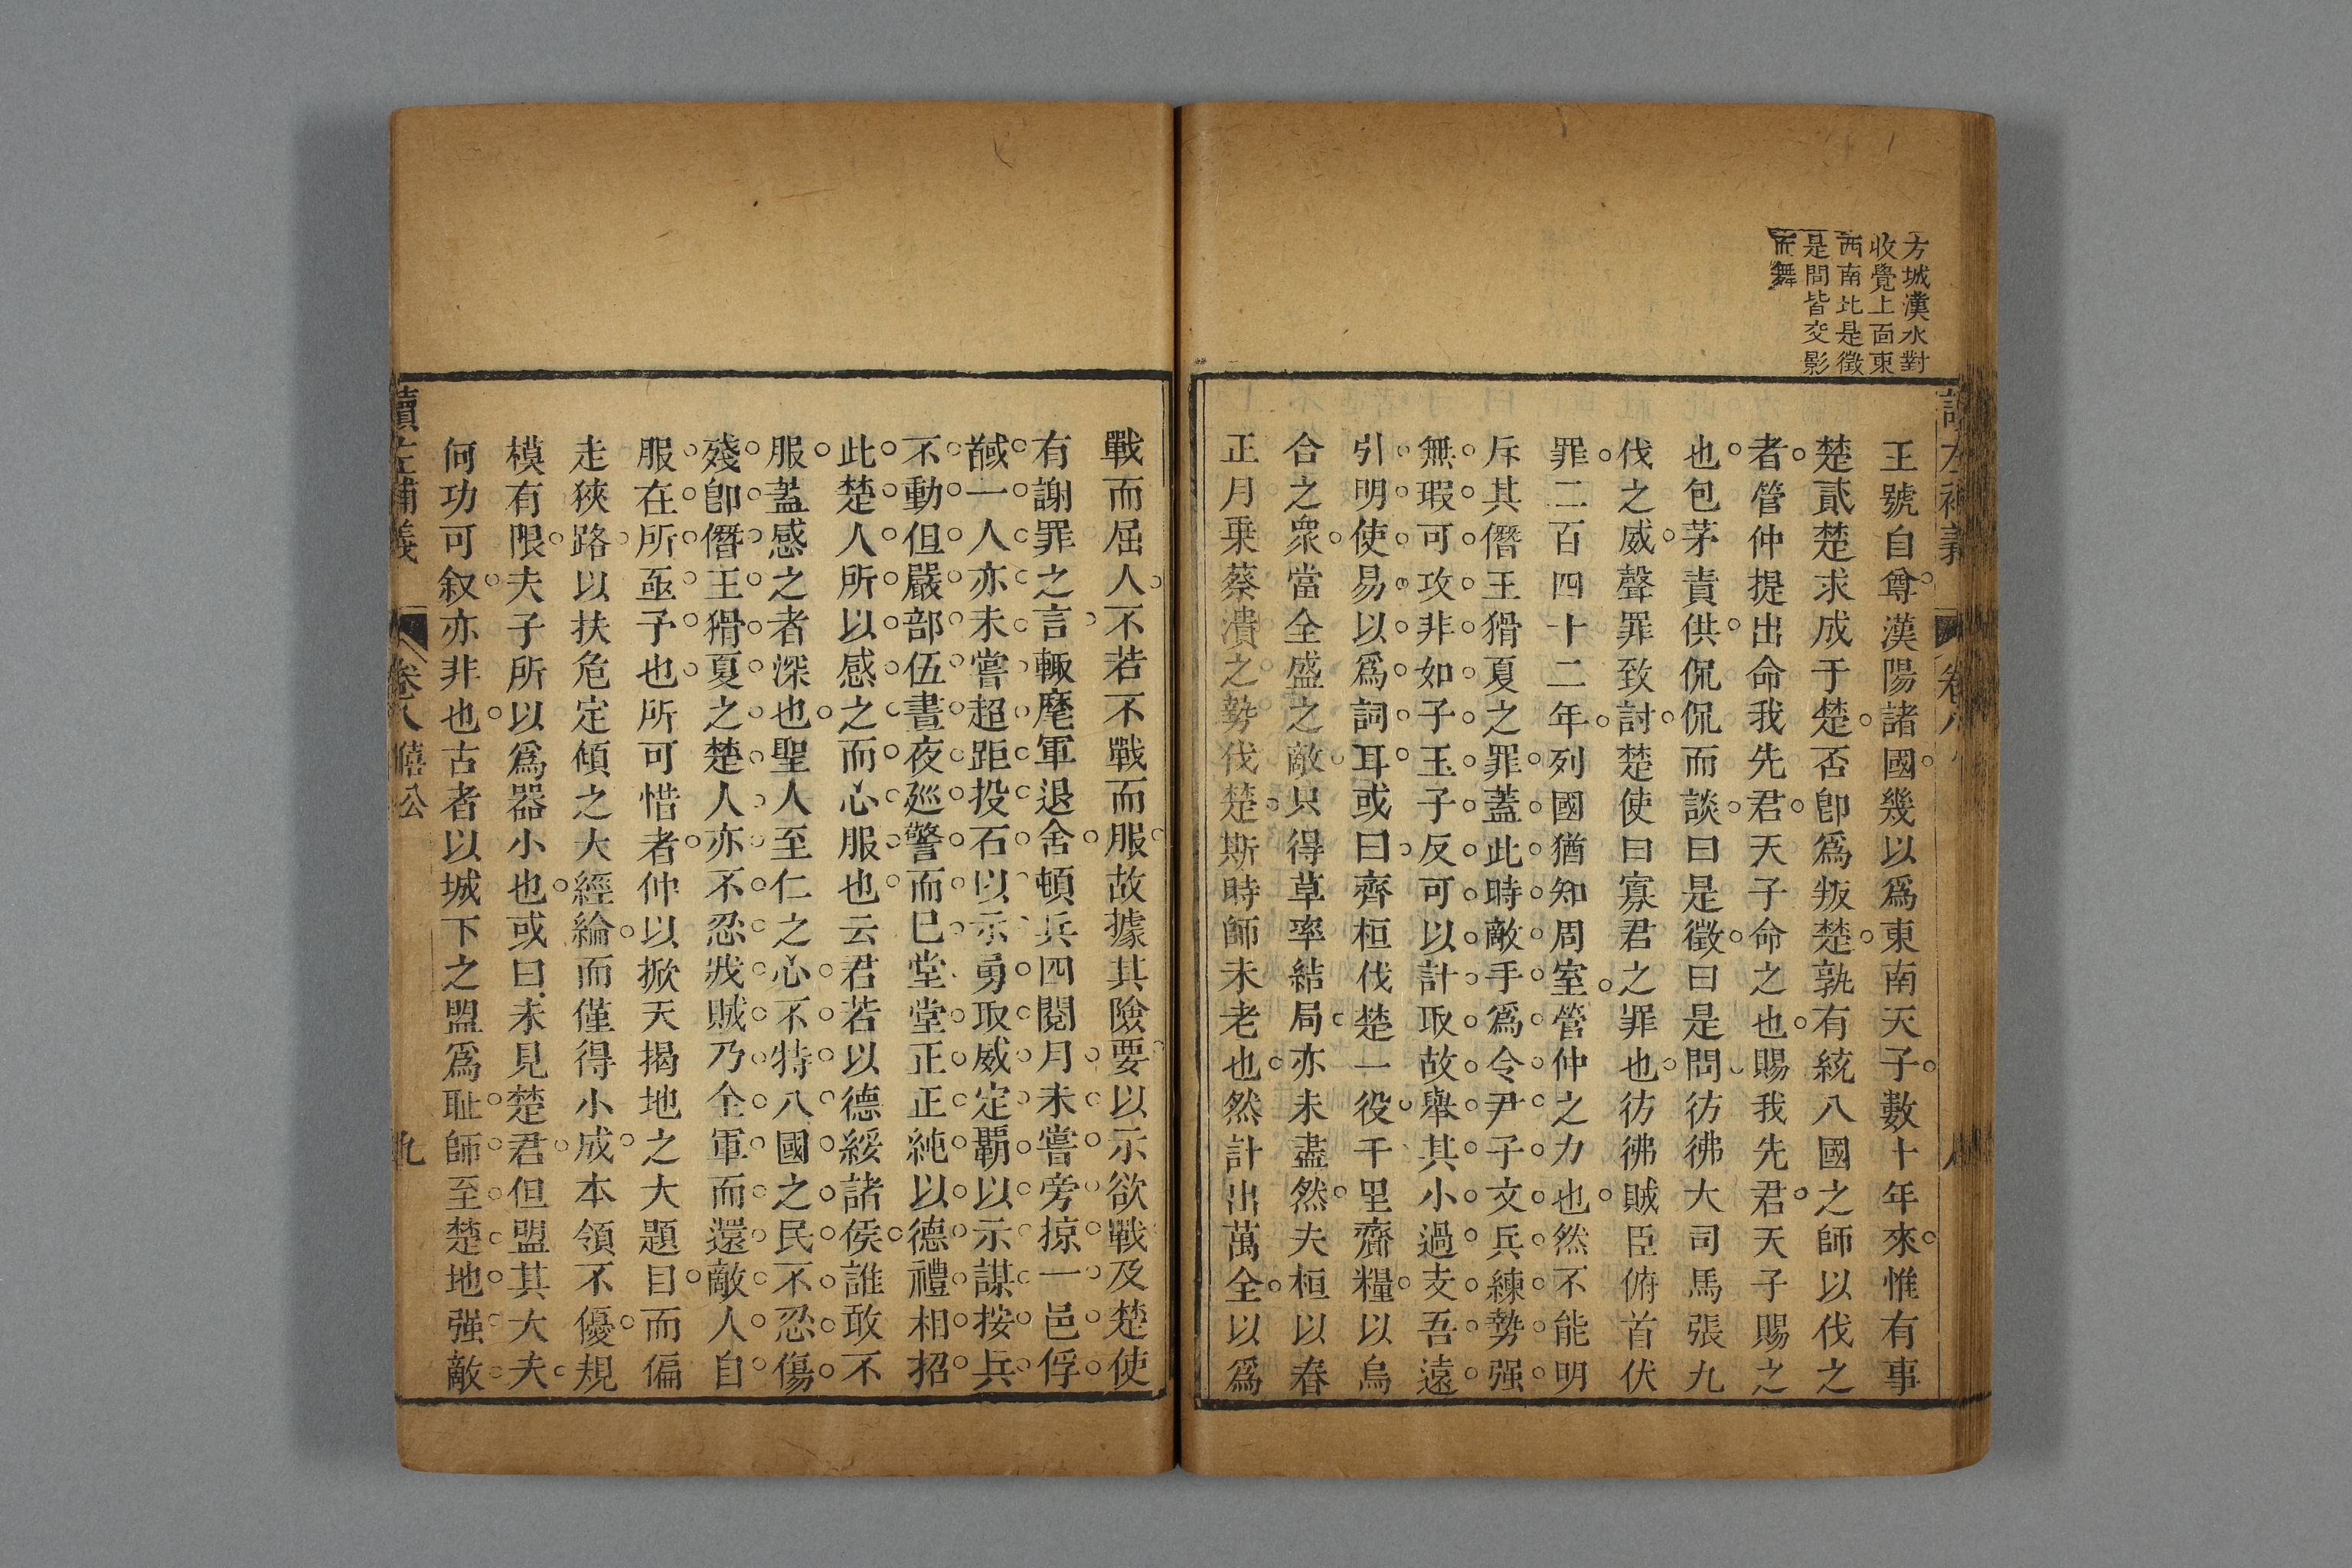 方城漢水對
收覺上面東
西南北是徵
是問皆交影
而舞
王號自尊漢陽諸國幾以爲東南天子數十年來惟有事
楚貳楚求成于楚否卽爲叛楚孰有統八國之師以伐之
者管仲提出命我先君天子命之也賜我先君天子賜之
也包茅責供侃侃而談曰是徵曰是問彷彿大司馬張九
伐之威聲罪致討楚使曰寡君之罪也彷彿賊臣俯首伏
罪二百四十二年列國猶知周室管仲之力也然不能明
斥其僭王猾夏之罪蓋此時敵手爲令尹子文兵練勢强
無瑕可攻非如子玉子反可以計取故舉其小過支吾遠
引明使易以爲詞耳或曰齊桓伐楚一役千里齎糧以烏
合之衆當全盛之敵只得草率結局亦未盡然夫桓以春
正月乗蔡潰之勢伐楚斯時師未老也然計出萬全以爲
戰而屈人不若不戰而服故據其險要以示欲戰及楚使
有謝罪之言輙麾軍退舍頓兵四閱月未嘗旁掠一邑俘
馘一人亦未嘗超距投石以示勇取威定覇以示謀按兵
不動但嚴部伍晝夜廵警而巳堂堂正正純以德禮相招
此楚人所以感之而心服也云君若以德綏諸侯誰敢不
服蓋感之者深也聖人至仁之心不特八國之民不忍傷
殘卽僭王猾夏之楚人亦不忍戕賊乃全軍而還敵人自
服在所亟予也所可惜者仲以掀天揭地之大題目而偏
走狹路以扶危定傾之大經綸而僅得小成本領不優規
模有限夫子所以爲器小也或曰未見楚君但盟其大夫
何功可叙亦非也古者以城下之盟爲耻師至楚地强敵
讀左補義 卷八 僖公 九